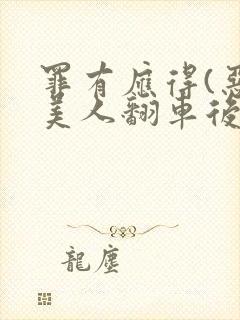 罪有應得(惡
美人翻車後
龍塵